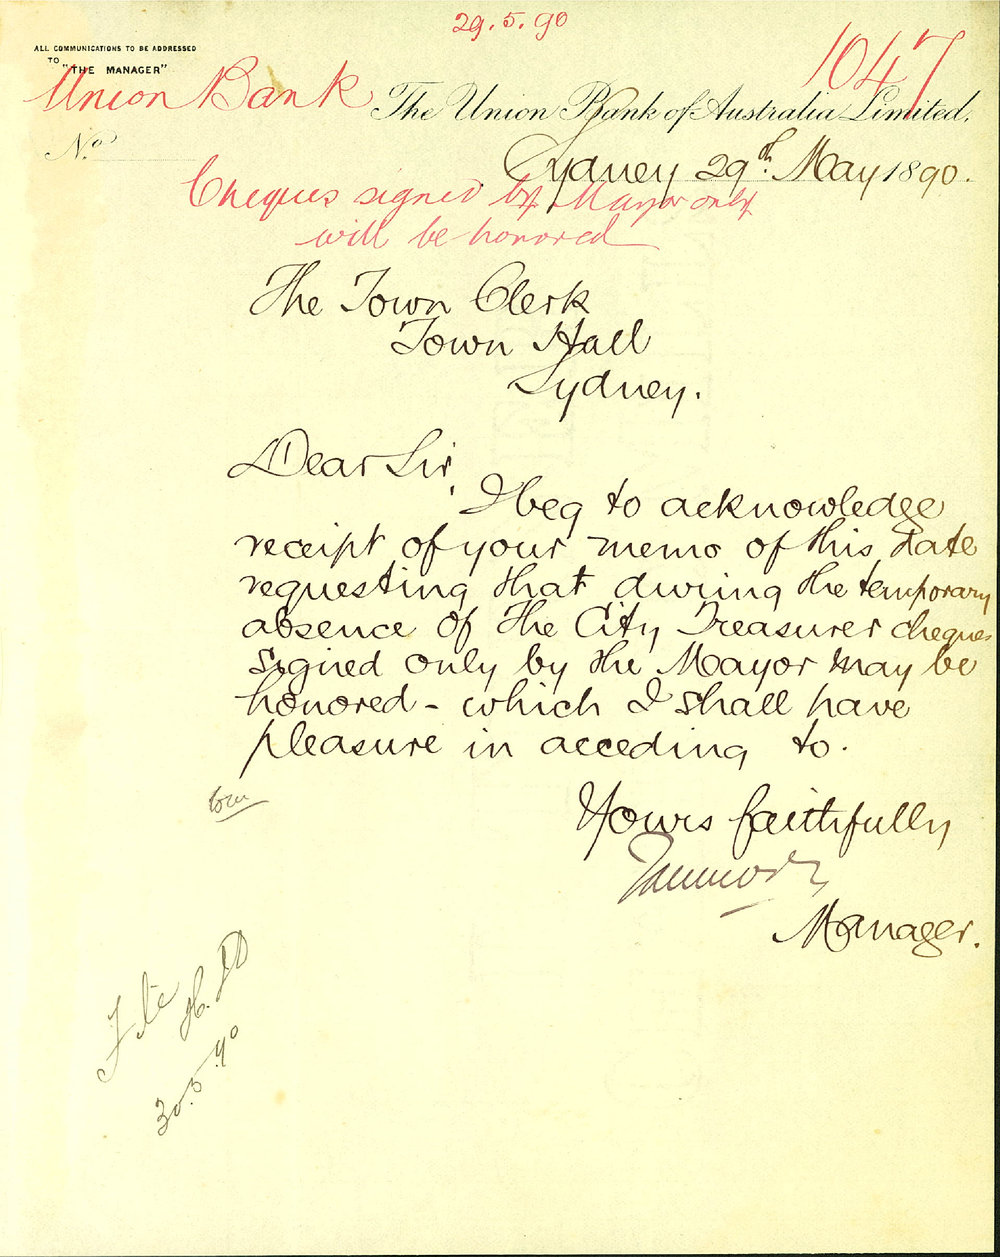 29.5.90
1047
ALL COMMUNICATIONS TO BE ADDRESSED
TO "THE MANAGER"
Union Bank
The Union Bank of Australia Limited,
No.
Sydney 29th May 1890.
Cheques signed by Mayor only
will be honored
The Town Clerk
Town Hall
Sydney.
Dear Sir,
I beg to acknowledge
receipt of your memo of this date
requesting that during the temporary
absence of the City Treasurer cheques
signed only by the Mayor may be
honored - which I shall have
pleasure in acceding to.
Yours faithfully
Manager.
File
30.5.90